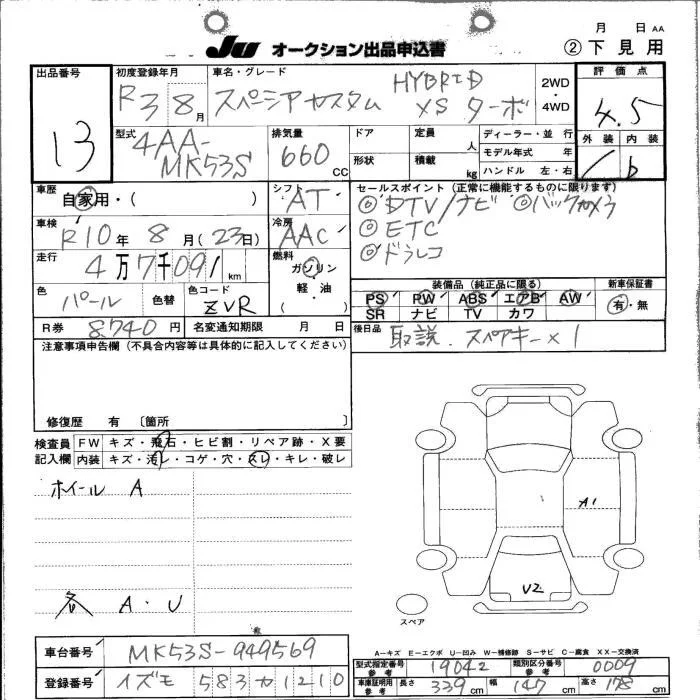 月 日 AA
JU オークション出品申込書 ②下見用
出品番号 13
初度登録年月 R3 8月
車名・グレード スペーシアカスタム HYBRID XS ターボ
2WD・4WD
評価点 4.5
外装 内装
型式 4AA-MK53S
排気量 660 CC
ドア 定員 人
形状 積載 kg
ディーラー・並行
モデル年式 年
ハンドル 左・右
車歴 自家用・( )
シフト AT
車検 R10年 8月(23日)
冷房 AAC
走行 4万7千091km
燃料 ガソリン 軽・油 ( )
セールスポイント(正常に機能するものに限ります)
◎DTV/ナビ ◎バックカメラ
◎ETC
◎ドラレコ
色 パール 色替 色コード ZVR
装備品(純正品に限る) 新車保証書
PS PW ABS エアB AW 有・無
SR ナビ TV カワ
R券 8,740円 名変通知期限 月 日
後日品 取説.スペアキー×1
注意事項申告欄(不具合内容等は具体的に記入してください)
修復歴 有 〔箇所 〕
検査員記入欄
FW キズ・飛石・ヒビ割・リペア跡・X要
内装 キズ・汚レ・コゲ・穴・スレ・キレ・破レ
ホイール A
各 A・U
A1
U2
スペア
A-キズ E-エクボ U-凹み W-補修跡 S-サビ C-腐食 XX-交換済
車台番号 MK53S-949569
登録番号 イズモ 583カ1210
型式指定番号 参考 19042 類別区分番号 参考 0009
車庫証明用 参考 長さ 339cm 幅 147cm 高さ 178cm